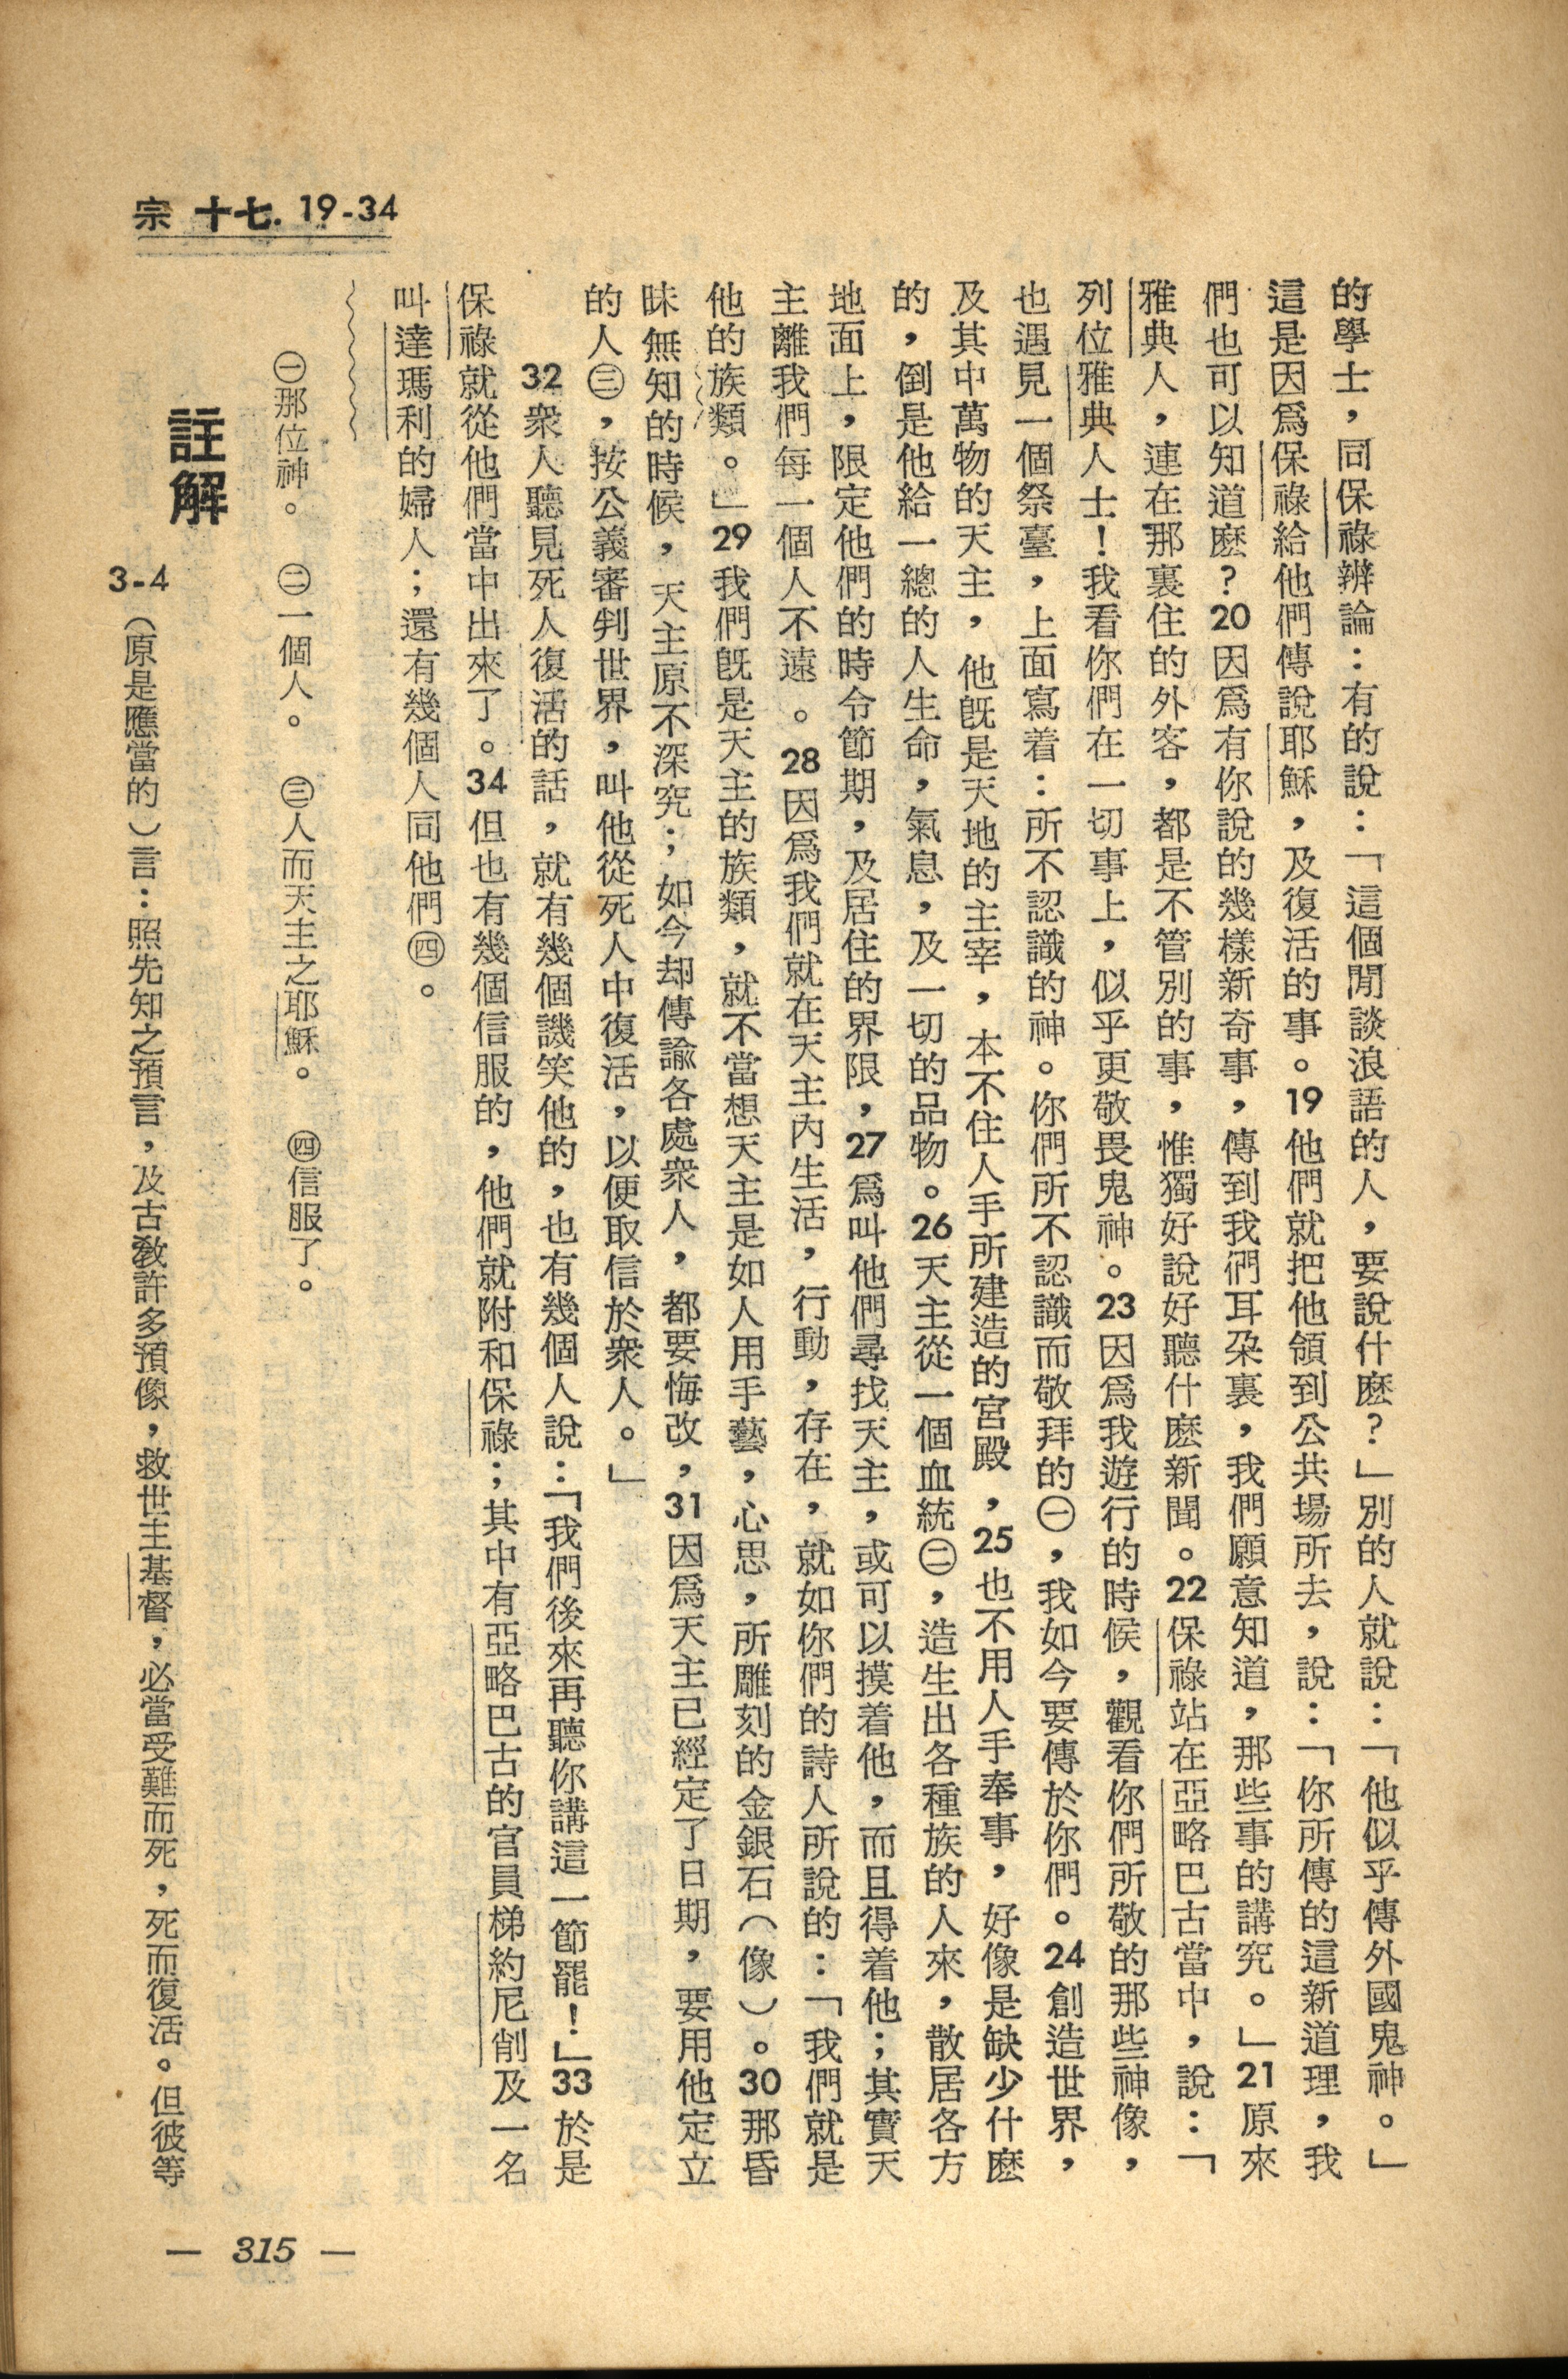 宗 十七. 19-34
的學士，同保祿辨論：有的說：「這個閒談浪語的人，要說什麽？」別的人就說：「他似乎傳外國鬼神。」
這是因爲保祿給他們傳說耶穌，及復活的事。19他們就把他領到公共場所去，說：「你所傳的這新道理，我
們也可以知道麽？20因爲有你說的幾樣新奇事，傳到我們耳朶裏，我們願意知道，那些事的講究。」21原來
雅典人，連在那裏住的外客，都是不管別的事，惟獨好說好聽什麽新聞。22保祿站在亞略巴古當中，說：「
列位雅典人士！我看你們在一切事上，似乎更敬畏鬼神。23因爲我遊行的時候，觀看你們所敬的那些神像，
也遇見一個祭臺，上面寫着：所不認識的神。你們所不認識而敬拜的㊀，我如今要傳於你們。24創造世界，
及其中萬物的天主，他旣是天地的主宰，本不住人手所建造的宮殿，25也不用人手奉事，好像是缺少什麽
的，倒是他給一總的人生命，氣息，及一切的品物。26天主從一個血統㊁，造生出各種族的人來，散居各方
地面上，限定他們的時令節期，及居住的界限，27爲叫他們尋找天主，或可以摸着他，而且得着他；其實天
主離我們每一個人不遠。28因爲我們就在天主內生活，行動，存在，就如你們的詩人所說的：「我們就是
他的族類。」29我們旣是天主的族類，就不當想天主是如人用手藝，心思，所雕刻的金銀石（像）。30那昏
昧無知的時候，天主原不深究；如今却傳諭各處衆人，都要悔改，31因爲天主已經定了日期，要用他定立
的人㊂，按公義審判世界，叫他從死人中復活，以便取信於衆人。」
32衆人聽見死人復活的話，就有幾個譏笑他的，也有幾個人說：「我們後來再聽你講這一節罷！」33於是
保祿就從他們當中出來了。34但也有幾個信服的，他們就附和保祿；其中有亞略巴古的官員梯約尼削及一名
叫達瑪利的婦人；還有幾個人同他們㊃。
㊀那位神。 ㊁一個人。 ㊂人而天主之耶穌。 ㊃信服了。
註解
3-4（原是應當的）言：照先知之預言，及古敎許多預像，救世主基督，必當受難而死，死而復活。但彼等
— 315 —